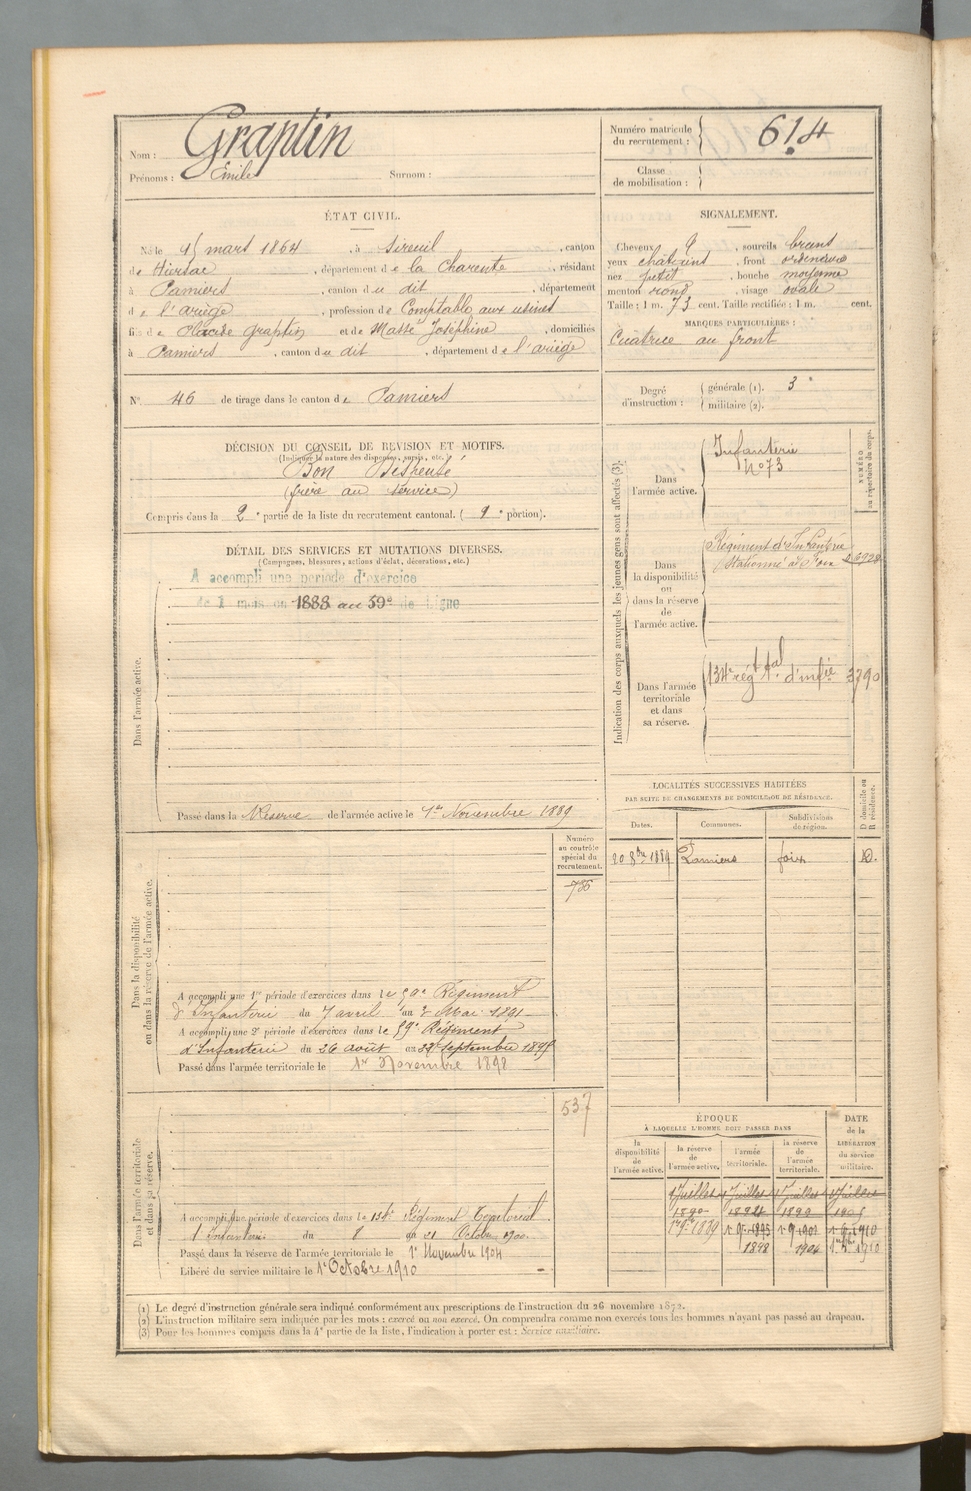 Nom : Graptin
Prénoms : Emile Surnom :
Numéro matricule du recrutement : 614
Classe de mobilisation :
ÉTAT CIVIL.
Né le 15 mars 1864, à Sireuil, canton
de Hiersac, département de la Charente, résidant
à Pamiers, canton du dit, département
de l'ariège, profession de Comptable aux usines
fils de Placide graptin et de Massé Joséphine, domiciliés
à Pamiers, canton du dit, département de l'ariège
N° 46 de tirage dans le canton de Pamiers
SIGNALEMENT.
Cheveux, sourcils bruns
yeux chatains, front ordinaire
nez petit, bouche moyenne
menton rond, visage ovale
Taille : 1 m. 73 cent. Taille rectifiée : 1 m. cent.
MARQUES PARTICULIÈRES :
Cicatrice au front
Degré d'instruction : générale (1). 3
militaire (2).
DÉCISION DU CONSEIL DE REVISION ET MOTIFS.
(Indiquer la nature des dispenses, sursis, etc.)
Bon Dispensé
(frère au service)
Compris dans la 2e partie de la liste du recrutement cantonal. ( 1e portion).
DÉTAIL DES SERVICES ET MUTATIONS DIVERSES.
(Campagnes, blessures, actions d'éclat, décorations, etc.)
A accompli une période d'exercice
de 1 mois en 1888 au 59e de Ligne
Dans l'armée active.
Passé dans la Réserve de l'armée active le 1er Novembre 1889
Indication des corps auxquels les jeunes gens sont affectés (3).
NUMÉRO au répertoire du corps.
Dans l'armée active.
Infanterie
N° 73
Dans la disponibilité ou dans la réserve de l'armée active.
Régiment d'Infanterie
Stationné à Foix
Dans l'armée territoriale et dans sa réserve.
134e régt tal d'infie 3790
LOCALITÉS SUCCESSIVES HABITÉES
PAR SUITE DE CHANGEMENTS DE DOMICILE OU DE RÉSIDENCE.
D domicile ou R résidence.
Dates. Communes. Subdivisions de région.
20 8bre 1889 Pamiers foix D.
Dans la disponibilité ou dans la réserve de l'armée active.
Numéro au contrôle spécial du recrutement.
786
A accompli une 1re période d'exercices dans le 59e Régiment
d'Infanterie du 7 avril au 4 Mai 1891
A accompli une 2e période d'exercices dans le 59e Régiment
d'Infanterie du 26 août au septembre
Passé dans l'armée territoriale le 1er Novembre 1898
Dans l'armée territoriale et dans sa réserve.
537
A accompli une période d'exercices dans le 134e Régiment Territorial
d'Infanterie du 8 au 21 Octobre 1900
Passé dans la réserve de l'armée territoriale le 1er Novembre 1904
Libéré du service militaire le 1er Octobre 1910
ÉPOQUE
À LAQUELLE L'HOMME DOIT PASSER DANS
DATE de la LIBÉRATION du service militaire.
la disponibilité de l'armée active.
la réserve de l'armée active.
l'armée territoriale.
la réserve de l'armée territoriale.
1 Juillet 1 Juillet 1 Juillet 1 Juillet
1890
1898 1904 1910
(1) Le degré d'instruction générale sera indiqué conformément aux prescriptions de l'instruction du 26 novembre 1872.
(2) L'instruction militaire sera indiquée par les mots : exercé ou non exercé. On comprendra comme non exercés tous les hommes n'ayant pas passé au drapeau.
(3) Pour les hommes compris dans la 4e partie de la liste, l'indication à porter est : Service auxiliaire.